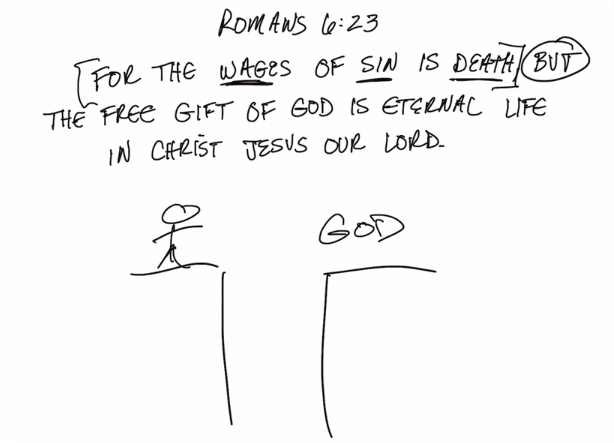 ROMANS 6:23
[FOR THE WAGES OF SIN IS DEATH] BUT
THE FREE GIFT OF GOD IS ETERNAL LIFE
IN CHRIST JESUS OUR LORD.
GOD